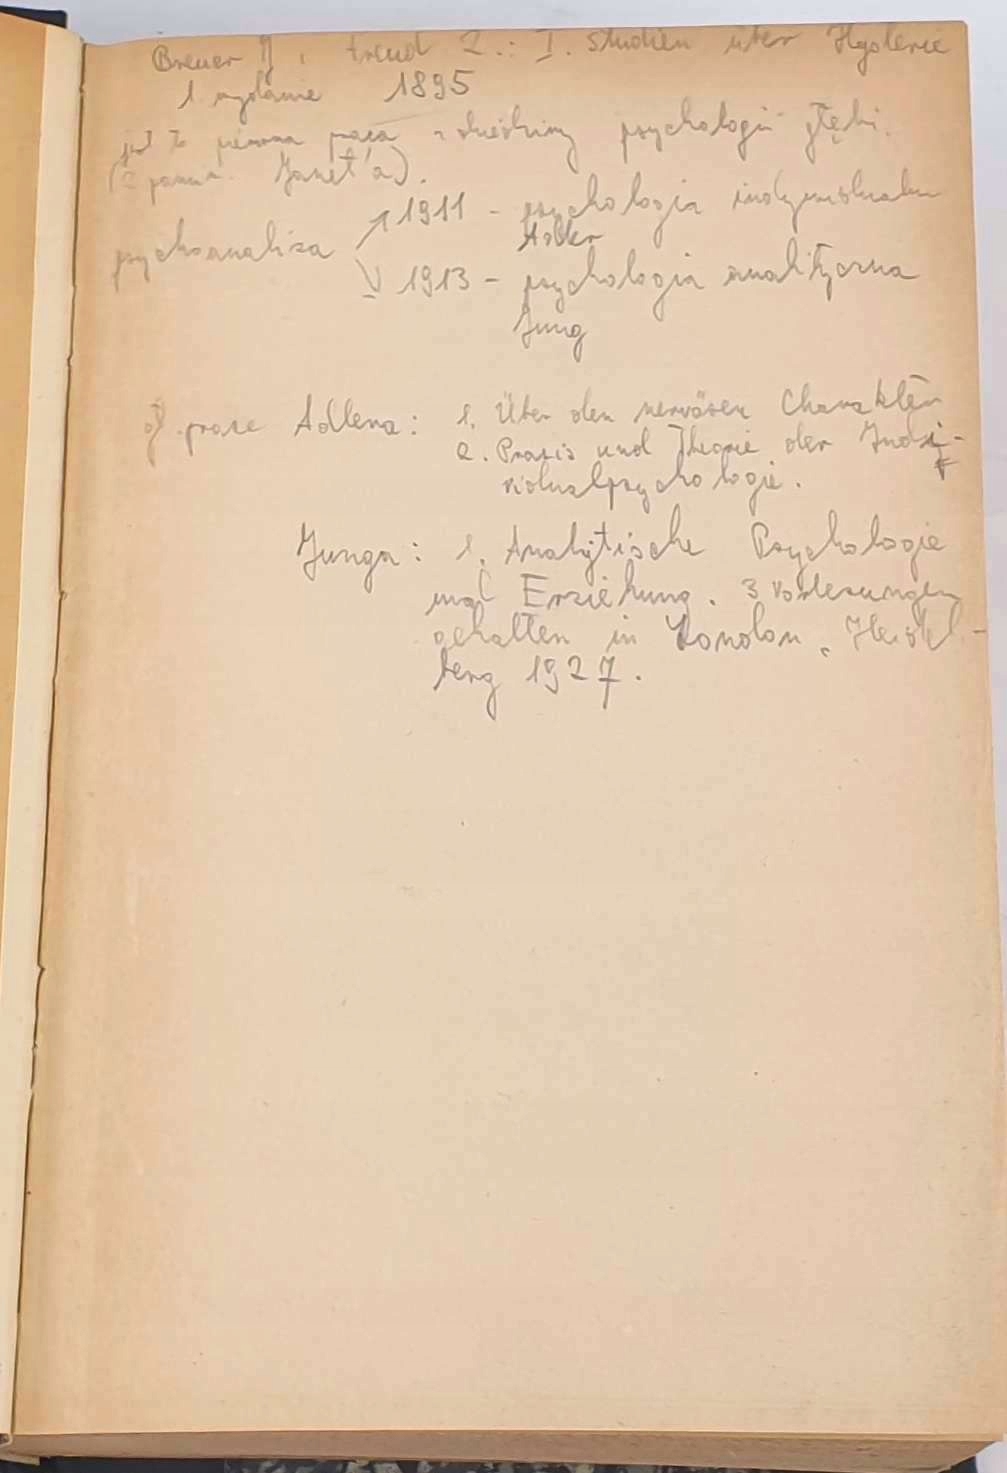 Breuer J. i Freud Z.: I. Studien über Hysterie
1. wydanie 1895
jest to pierwsza praca z dziedziny psychologii głębi.
(2 Janet'a).
psychoanaliza ↗ 1911 - psychologia indywidualna
Adler
↘ 1913 - psychologia analityczna
Jung
prace Adlera: 1. Über den nervösen Charakter
2. Praxis und Theorie der Indi-
vidualpsychologie.
Junga: 1. Analytische Psychologie
und Erziehung. 3 Vorlesungen
gehalten in London, Heidel-
berg 1927.